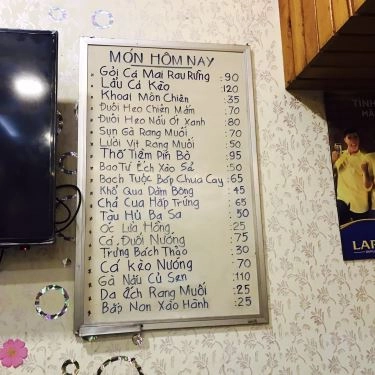 MÓN HÔM NAY
* Gỏi Cá Mai Rau Rừng : 90
* Lẩu Cá Kèo : 120
* Khoai Môn Chiên : 35
* Đuôi Heo Chiên Mắm : 70
* Đuôi Heo Nấu Ớt Xanh : 80
* Sụn Gà Rang Muối : 70
* Lưỡi Vịt Rang Muối : 50
* Thố Tiềm Pín Bò : 95
* Bao Tử Ếch Xào Sả : 50
* Bạch Tuộc Bắp Chua Cay : 65
* Khổ Qua Dồn Bông : 45
* Chả Cua Hấp Trứng : 65
* Tàu Hủ Ba Sa : 50
* Ốc Lưa Hồng : 25
* Cá Đuối Nướng : 75
* Trứng Bách Thảo : 30
* Cá Kèo Nướng : 70
* Gà Nấu Củ Sen : 110
* Da Ếch Rang Muối : 25
* Bắp Non Xào Hành : 25
TINH
LAR